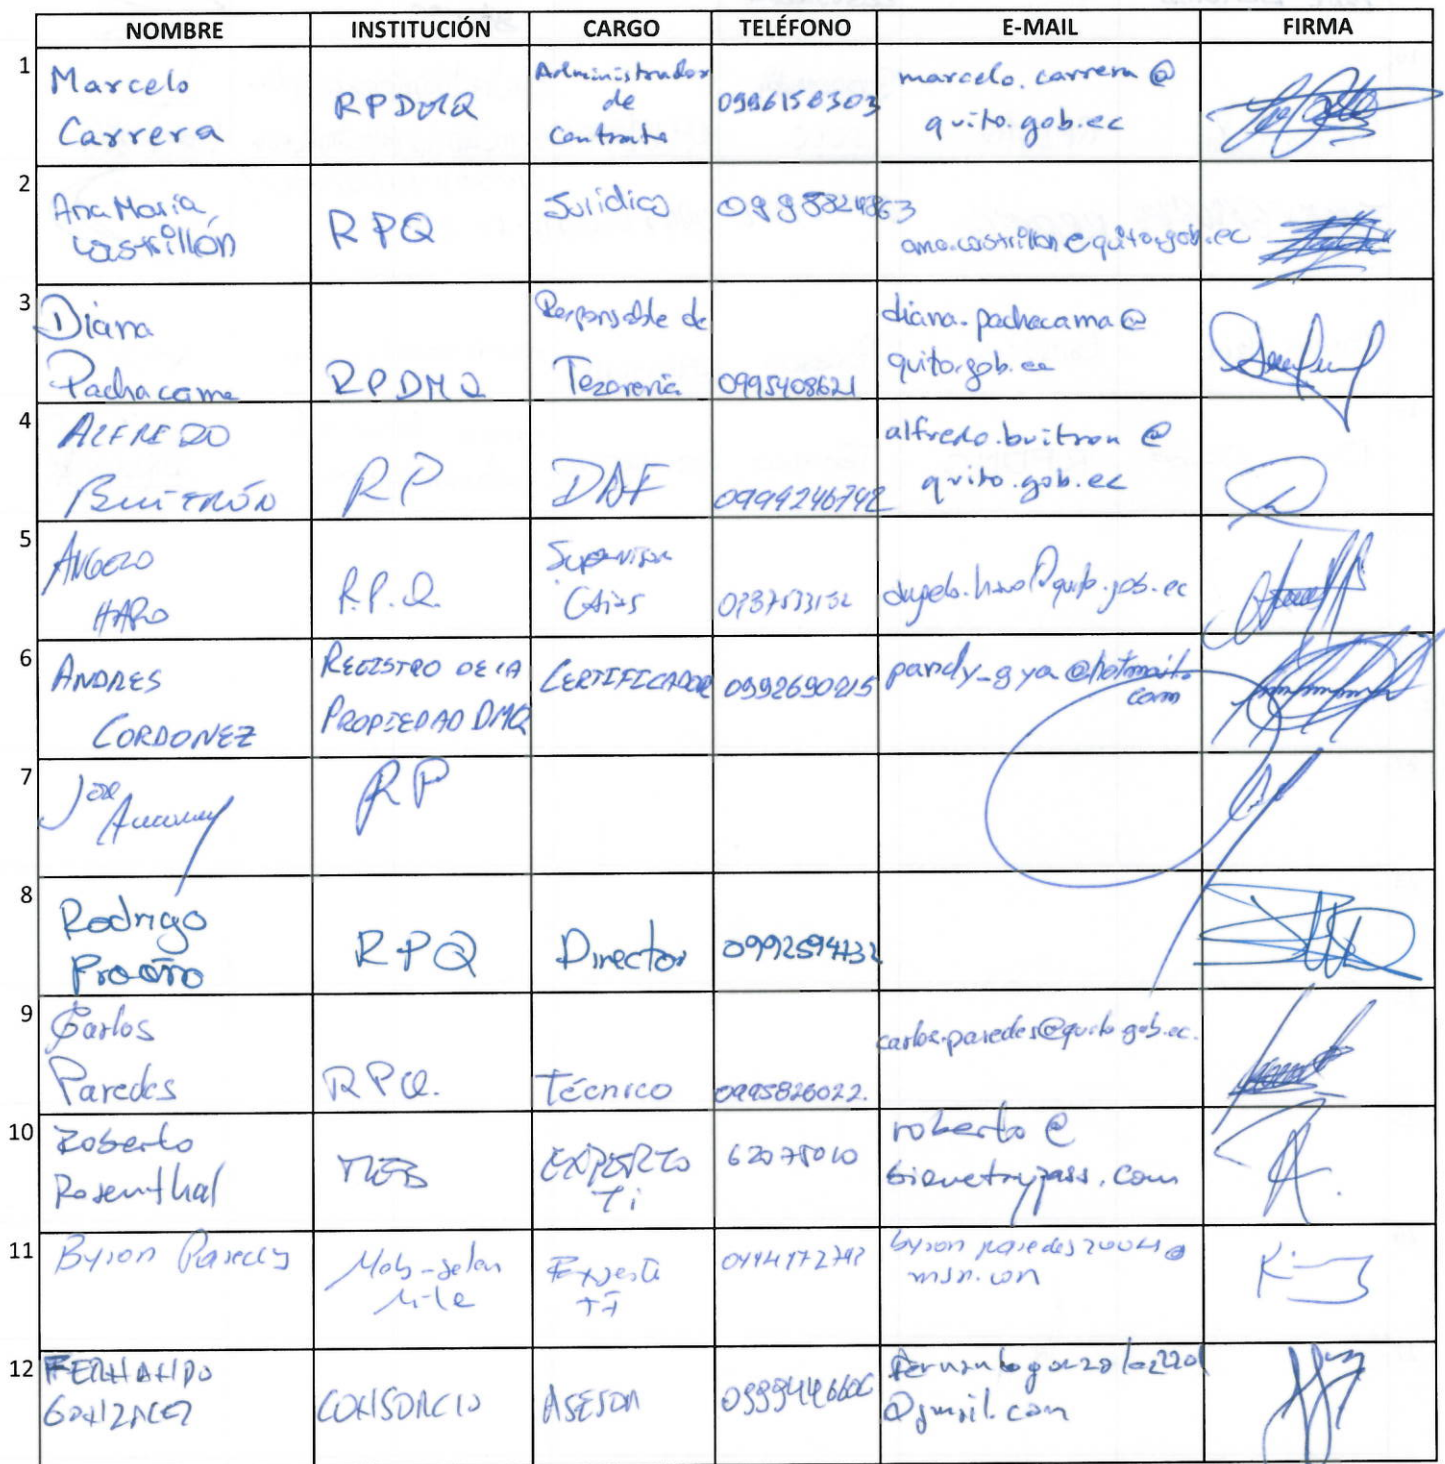 NOMBRE INSTITUCIÓN CARGO TELÉFONO E-MAIL FIRMA
1 Marcelo Carrera RPDMQ Administrador de Contrato 0996156303 marcelo.carrera@ quito.gob.ec
2 Ana María Castrillón RPQ Jurídico 0998824863 ana.castrillon@quito.gob.ec
3 Diana Pachacama RPDMQ Responsable de Tezoreria 0995408621 diana.pachacama@ quito.gob.ec
4 ALFREDO BUITRÓN RP DAF 0999246742 alfredo.buitron@ quito.gob.ec
5 ANGELO HARO R.P.Q. Supervisor
6 ANDRES CORDONEZ REGISTRO DE LA PROPIEDAD DMQ CERTIFICADOR 0992690215 pandy_gya@hotmail. com
7 José RP
8 Rodrigo Proaño RPQ Director
9 Carlos Paredes RPQ. Técnico 0995826022. carlos.paredes@quito.gob.ec.
10 Roberto Rosenthal EXPERTO Ti 62075010 roberto@
11 Byron Paredes Experto TI
12 FERNANDO GONZALEZ CONSORCIO ASESOR @gmail.com